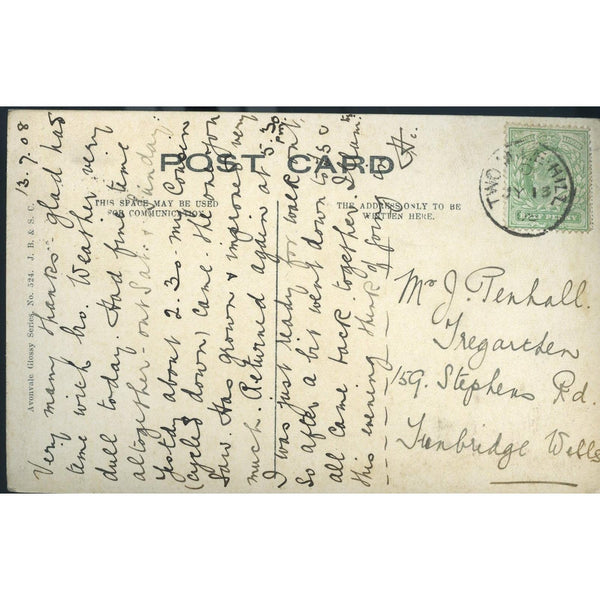 POST CARD
THIS SPACE MAY BE USED
FOR COMMUNICATION
THE ADDRESS ONLY TO BE
WRITTEN HERE.
Avonvale Glossy Series, No. 524. J. B. & S. C.
TWO MILE HILL
HALF PENNY
13.7.08
Very many thanks. Glad had
time with bro. Weather very
dull today. Had fine time
altogether - out Sat. & Sunday.
Yesterday about 2.30 my Cousin
(cycled down) came the one you
Saw. Has grown & improved very
much. Returned again at 5.30 pm.
I was just ready for walk out,
so after a bit went down to
all came back together. I am
this evening think of you
H.
Mr J. Penhall.
Tregarthen
159. Stephens Rd.
Tunbridge Wells